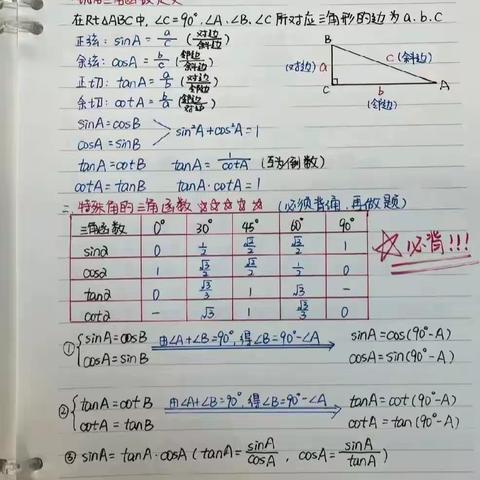 在Rt△ABC中, ∠C=90°, ∠A、∠B、∠C所对应三角形的边为a.b.c
正弦: sinA = a/c (对边/斜边)
余弦: cosA = b/c (邻边/斜边)
正切: tanA = a/b (对边/邻边)
余切: cotA = b/a (邻边/对边)
B
(对边) a
c (斜边)
C
b
A
(邻边)
sinA=cosB
cosA=sinB
sin²A+cos²A=1
tanA=cotB tanA = 1/cotA (互为倒数)
cotA=tanB tanA·cotA=1
二、特殊角的三角函数 ☆☆☆☆☆ (必须背诵,再做题)
三角函数 0° 30° 45° 60° 90°
sinα 0 1/2 √2/2 √3/2 1
cosα 1 √3/2 √2/2 1/2 0
tanα 0 √3/3 1 √3 -
cotα - √3 1 √3/3 0
☆必背!!!
① {sinA=cosB 由∠A+∠B=90°,得∠B=90°-∠A sinA=cos(90°-A)
cosA=sinB cosA=sin(90°-A)
② {tanA=cotB 由∠A+∠B=90°,得∠B=90°-∠A tanA=cot(90°-A)
cotA=tanB cotA=tan(90°-A)
③ sinA=tanA·cosA (tanA=sinA/cosA, cosA=sinA/tanA)